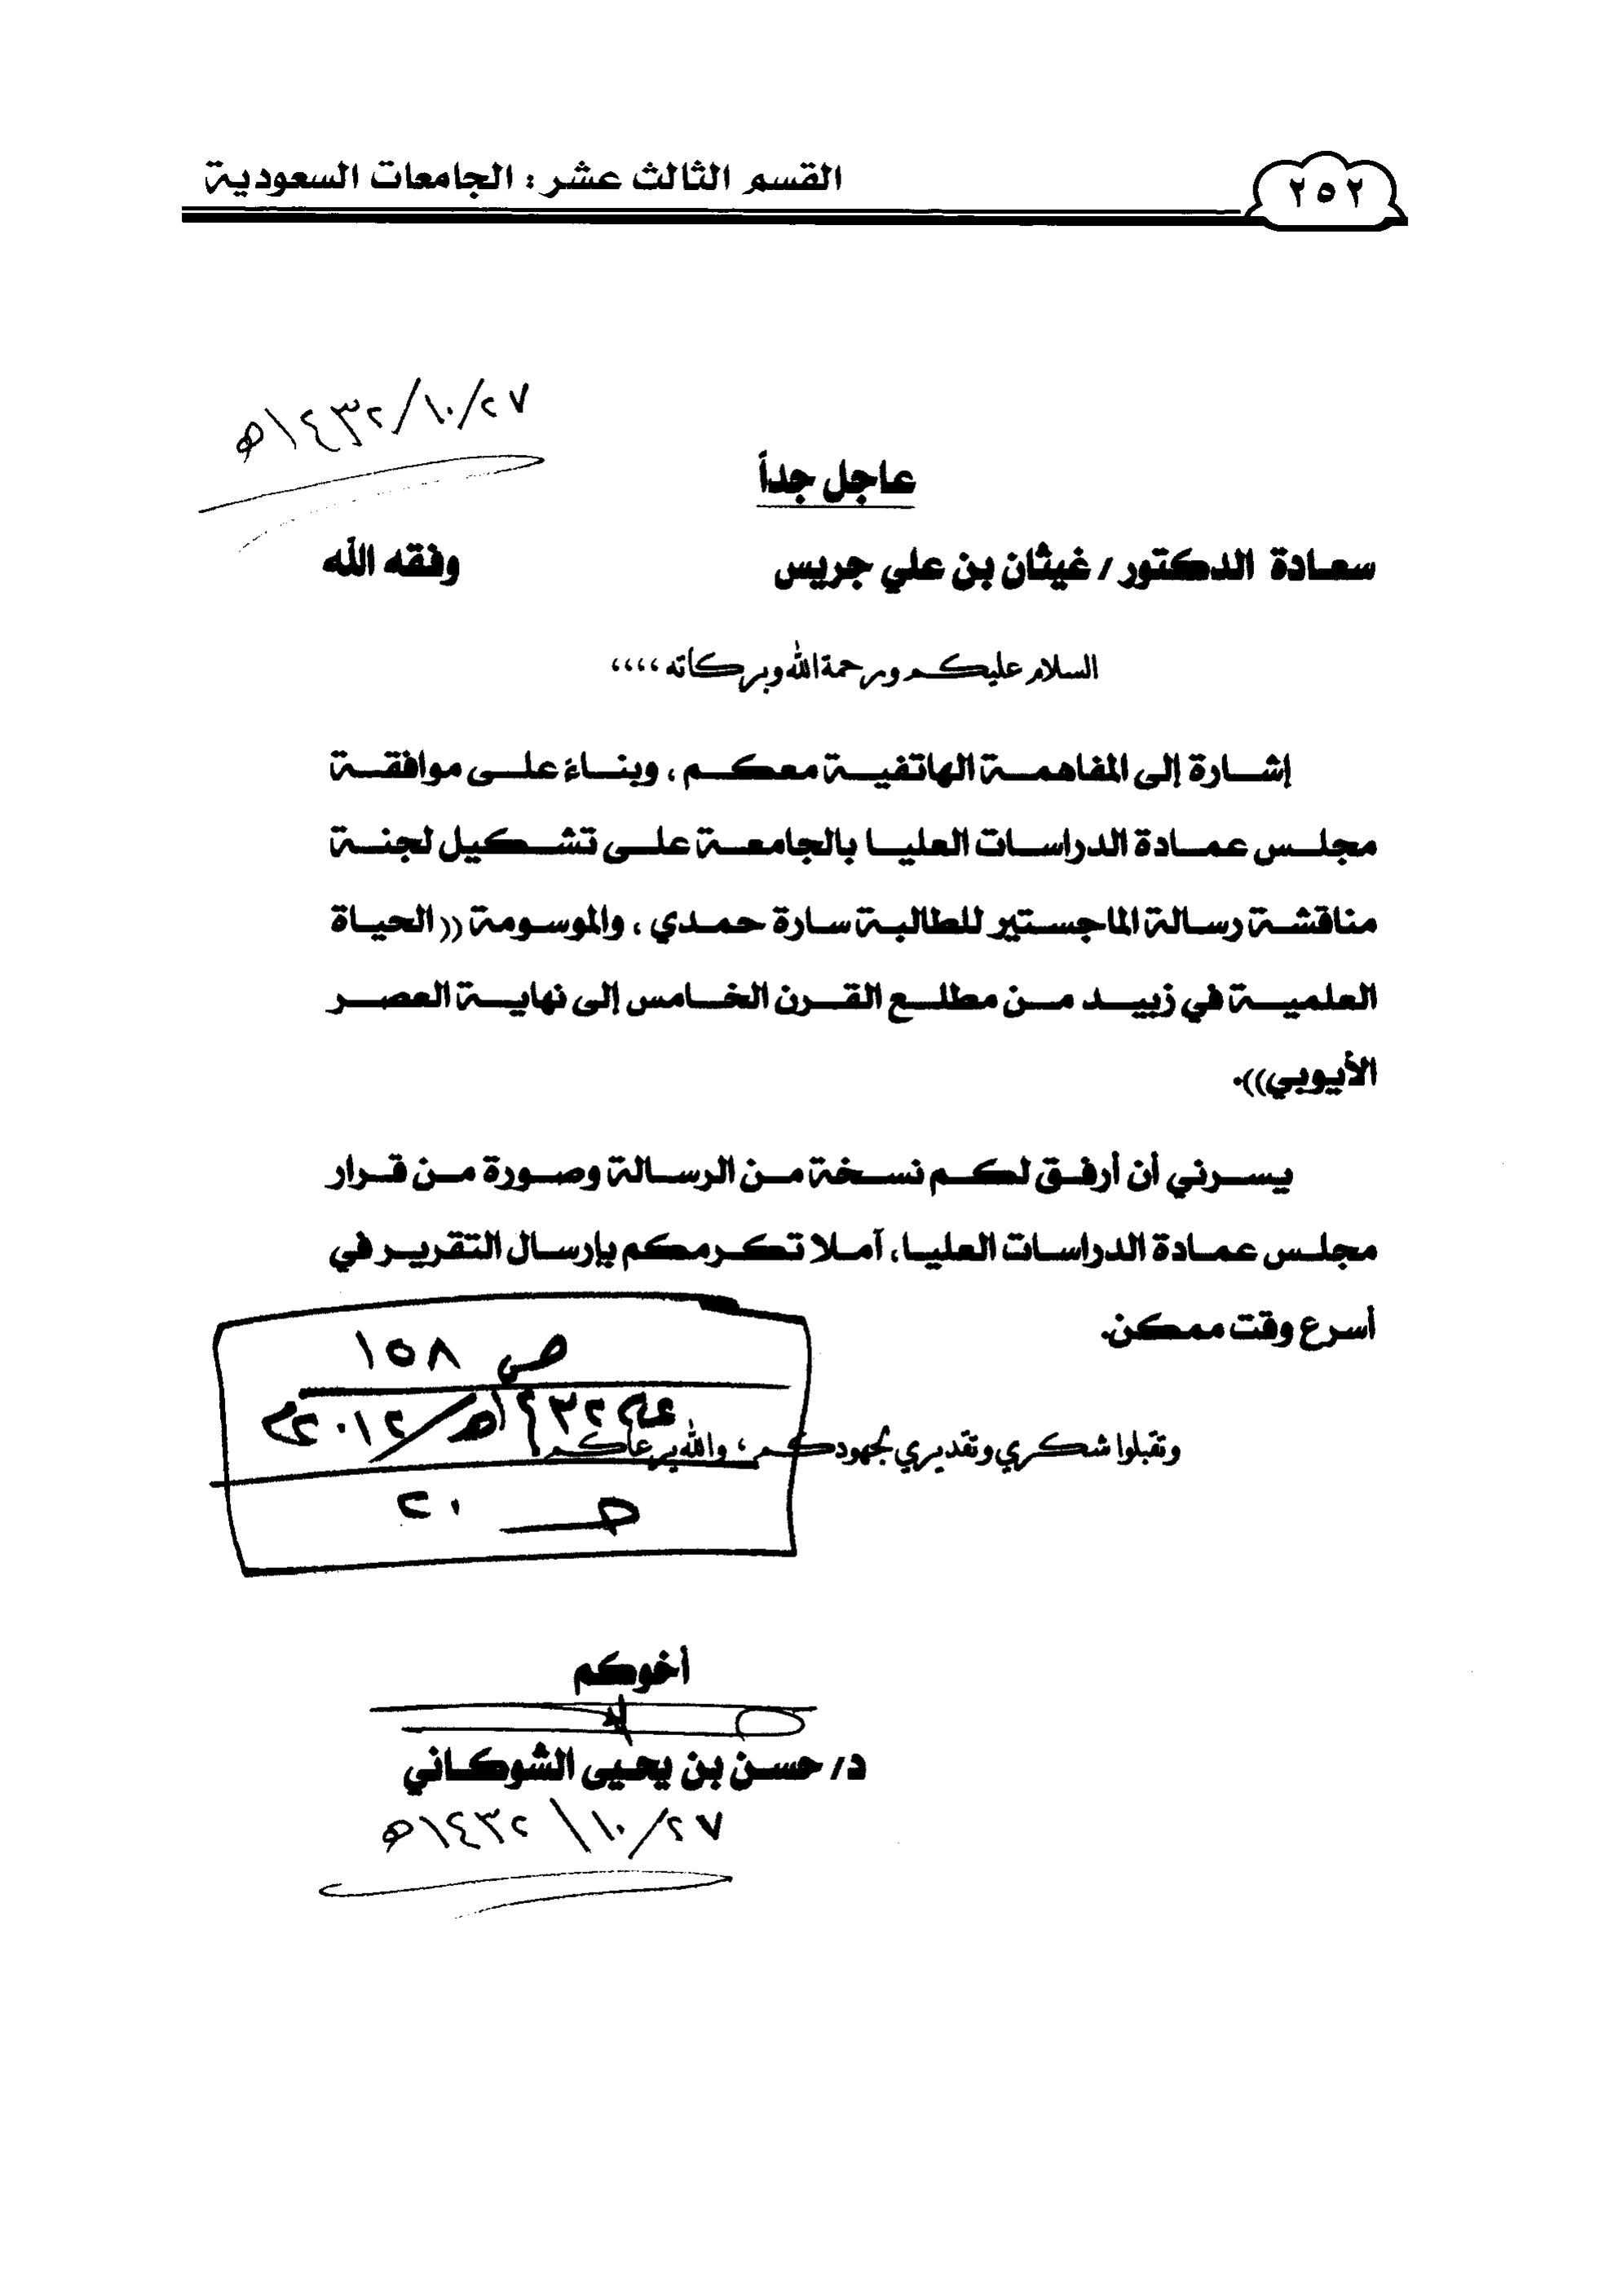 القسم الثالث عشر : الجامعات السعودية
٢٥٢
٢٧/١٠/١٤٣٢هـ
عاجل جداً
سعادة الدكتور / غيثان بن علي جريس وفقه الله
السلام عليكم ورحمة الله وبركاته ،،،،
إشارة إلى المفاهمة الهاتفية معكم ، وبناء على موافقة
مجلس عمادة الدراسات العليا بالجامعة على تشكيل لجنة
مناقشة رسالة الماجستير للطالبة سارة حمدي ، والموسومة ((الحياة
العلمية في زبيد من مطلع القرن الخامس إلى نهاية العصر
الأيوبي)).
يسرني أن أرفق لكم نسخة من الرسالة وصورة من قرار
مجلس عمادة الدراسات العليا، آملا تكرمكم بإرسال التقرير في
أسرع وقت ممكن.
ص ١٥٨
١٤٣٢هـ/٢٠١٢م
وتقبلوا شكري وتقديري لجهودكم ، والله يرعاكم
٢٠
أخوكم
د/ حسن بن يحيى الشوكاني
٢٧/١٠/١٤٣٢هـ